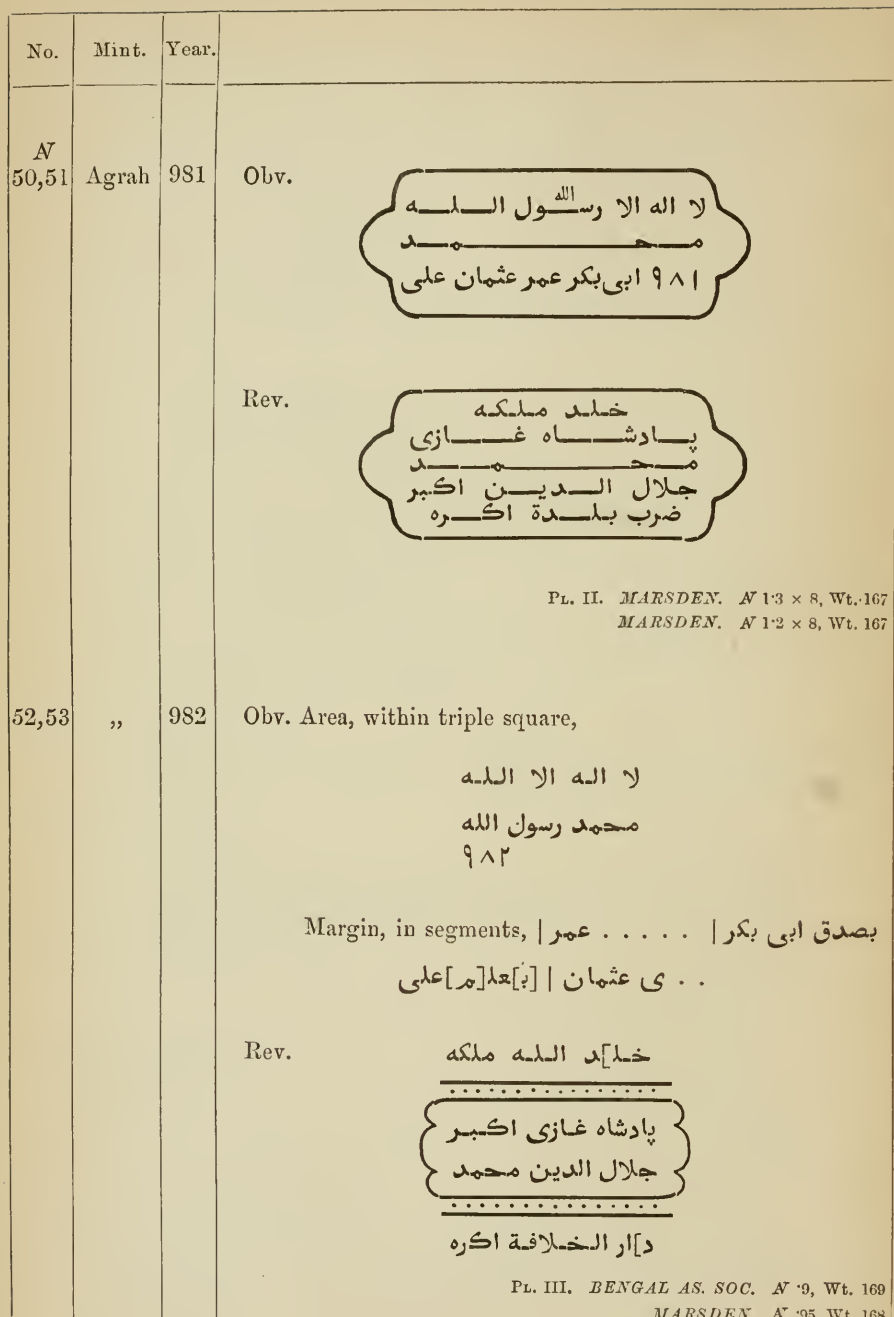 No. Mint. Year.
N
50,51 Agrah 981 Obv.
لا اله الا رسول الله الله
محمد
٩٨١ ابی بکر عمر عثمان علی
Rev.
خلد ملكه
پادشاه غازی
محمد
جلال الدين اكبر
ضرب بلدة اكره
PL. II. MARSDEN. N 1·3 × 8, Wt. 167
MARSDEN. N 1·2 × 8, Wt. 167
52,53 ,, 982 Obv. Area, within triple square,
لا اله الا الله
محمد رسول الله
٩٨٢
Margin, in segments, بصدق ابی بکر | . . . . . عمر |
. . ی عثمان | [ب]عل[م]علی
Rev.
خل]د الله ملكه
پادشاه غازی اكبر
جلال الدين محمد
د]ار الخلافة اكره
PL. III. BENGAL AS. SOC. N ·9, Wt. 169
MARSDEN. N ·95, Wt. 168